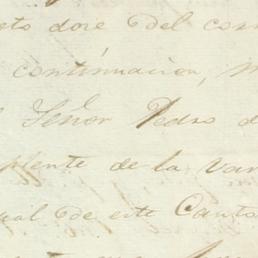 eto doce del corr
continuacion, m
Señor Pedro d
plente de la Var
ual de este Canto